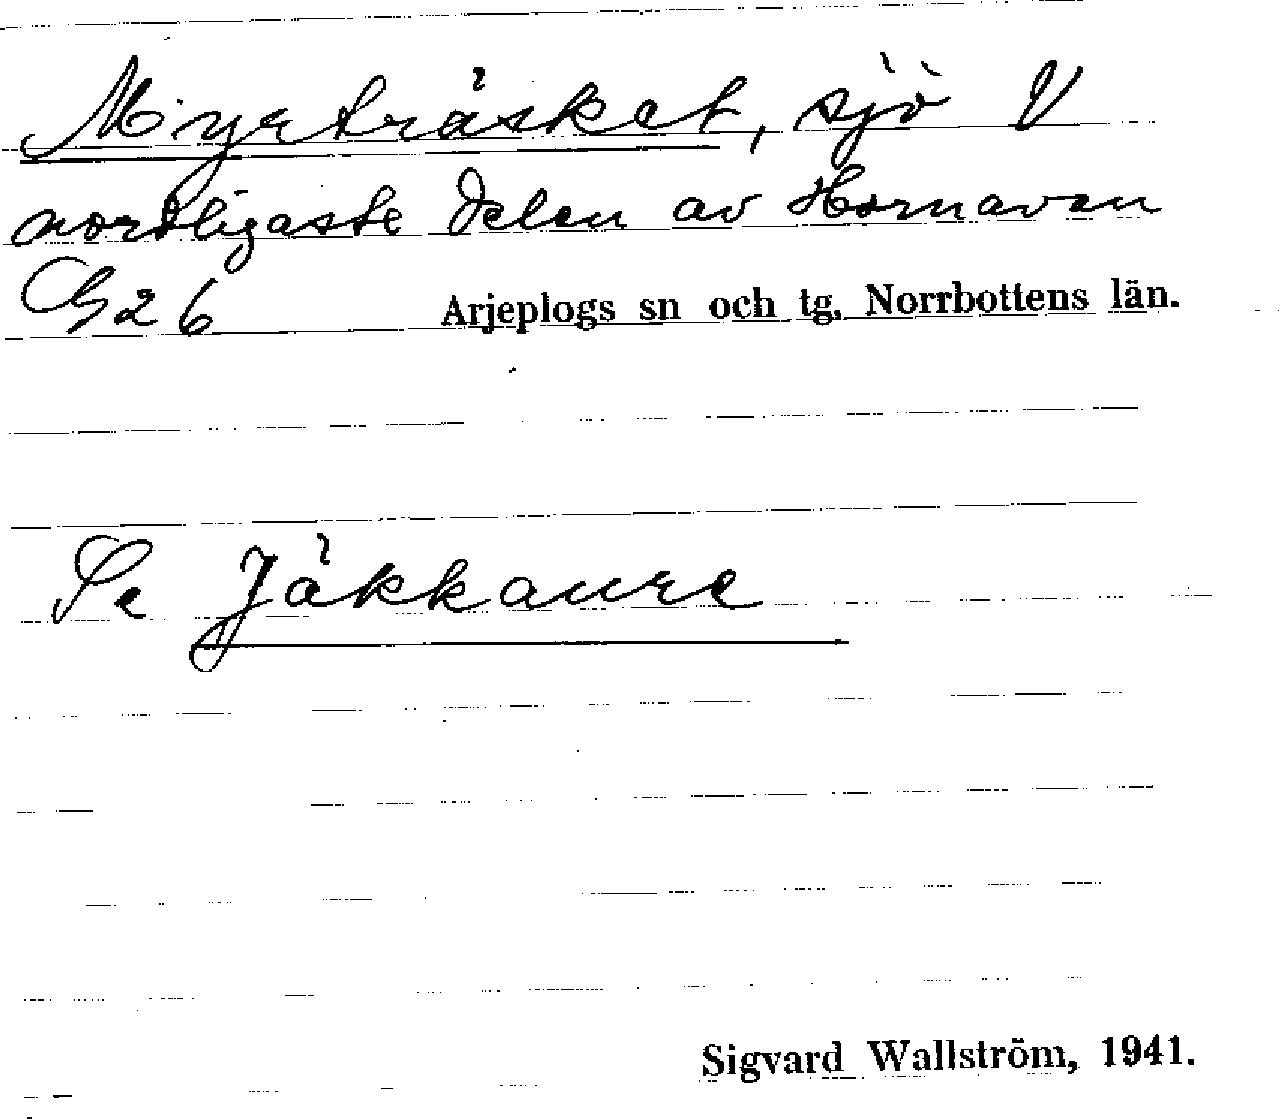 Myrträsket, sjö V
nordligaste delen av Hornavan
G26 Arjeplogs sn och tg, Norrbottens län.
Se Jäkkaure
Sigvard Wallström, 1941.